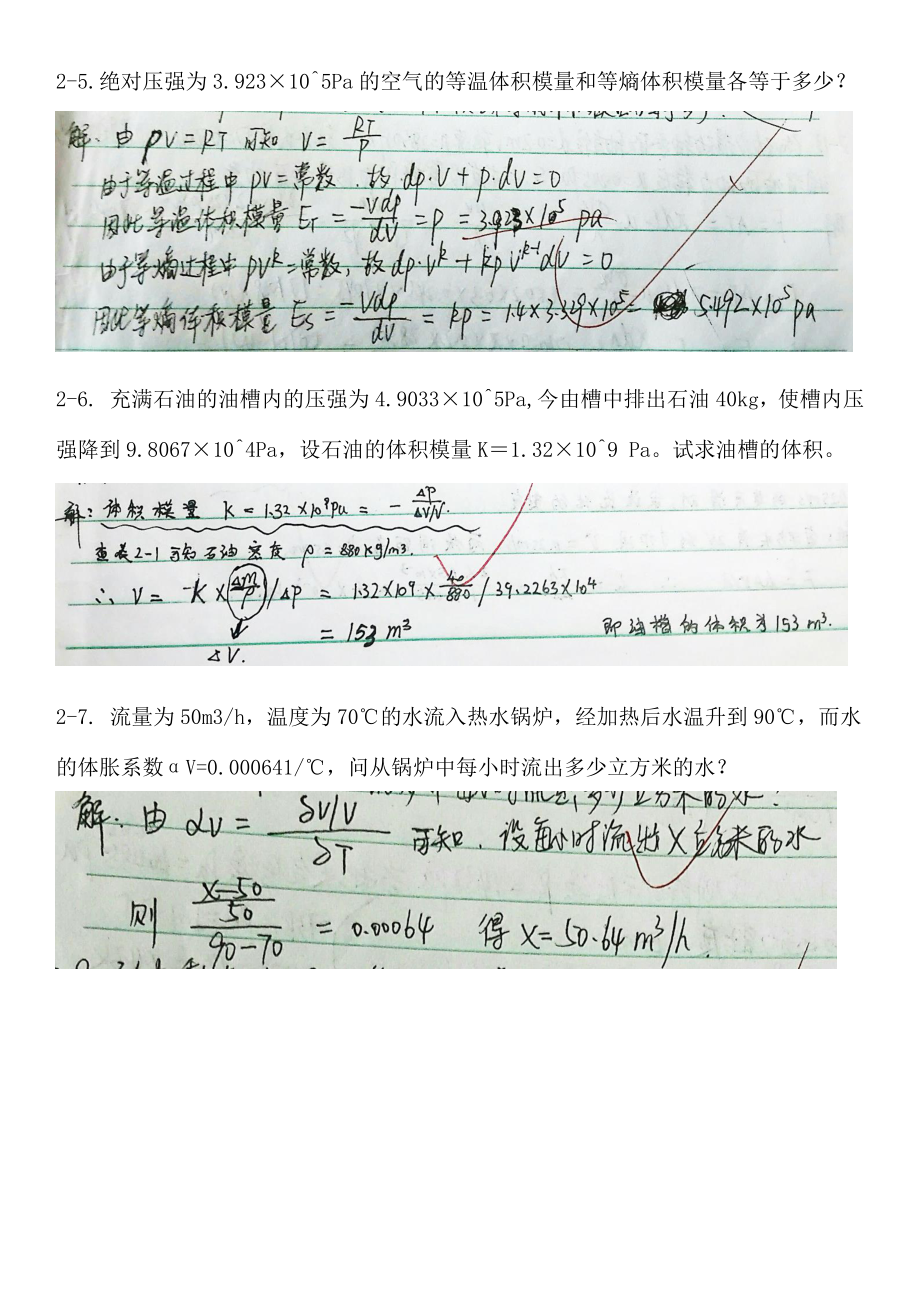 2-5.绝对压强为3.923×10^5Pa的空气的等温体积模量和等熵体积模量各等于多少?
解: 由 pV=RT 可知 V=RT/P
由于等温过程中 pV=常数, 故 dp·V+p·dV=0
因此等温体积模量 ET = -Vdp/dV = p = 3.923×10^5 pa
由于等熵过程中 pV^k=常数, 故 dp·V^k+kpV^k-1dV=0
因此等熵体积模量 Es = -Vdp/dV = kp = 1.4×3.329×10^5= 5.492×10^5 pa
2-6. 充满石油的油槽内的压强为4.9033×10^5Pa,今由槽中排出石油40kg，使槽内压
强降到9.8067×10^4Pa，设石油的体积模量K＝1.32×10^9 Pa。试求油槽的体积。
解: 体积模量 K=1.32×10^9Pa = - ΔP/ΔV/V.
查表2-1可知石油密度 ρ=880kg/m3.
∴ V= -K×(Δm/ρ)/ΔP = 1.32×10^9×40/880/39.2263×10^4
=153 m^3 即油槽的体积为153 m^3.
ΔV.
2-7. 流量为50m3/h，温度为70℃的水流入热水锅炉，经加热后水温升到90℃，而水
的体胀系数αV=0.000641/℃，问从锅炉中每小时流出多少立方米的水?
解: 由 αV= δV/V/δT 可知, 设每小时流出X立方米的水
则 X-50/50/90-70 = 0.00064 得 X=50.64 m^3/h.